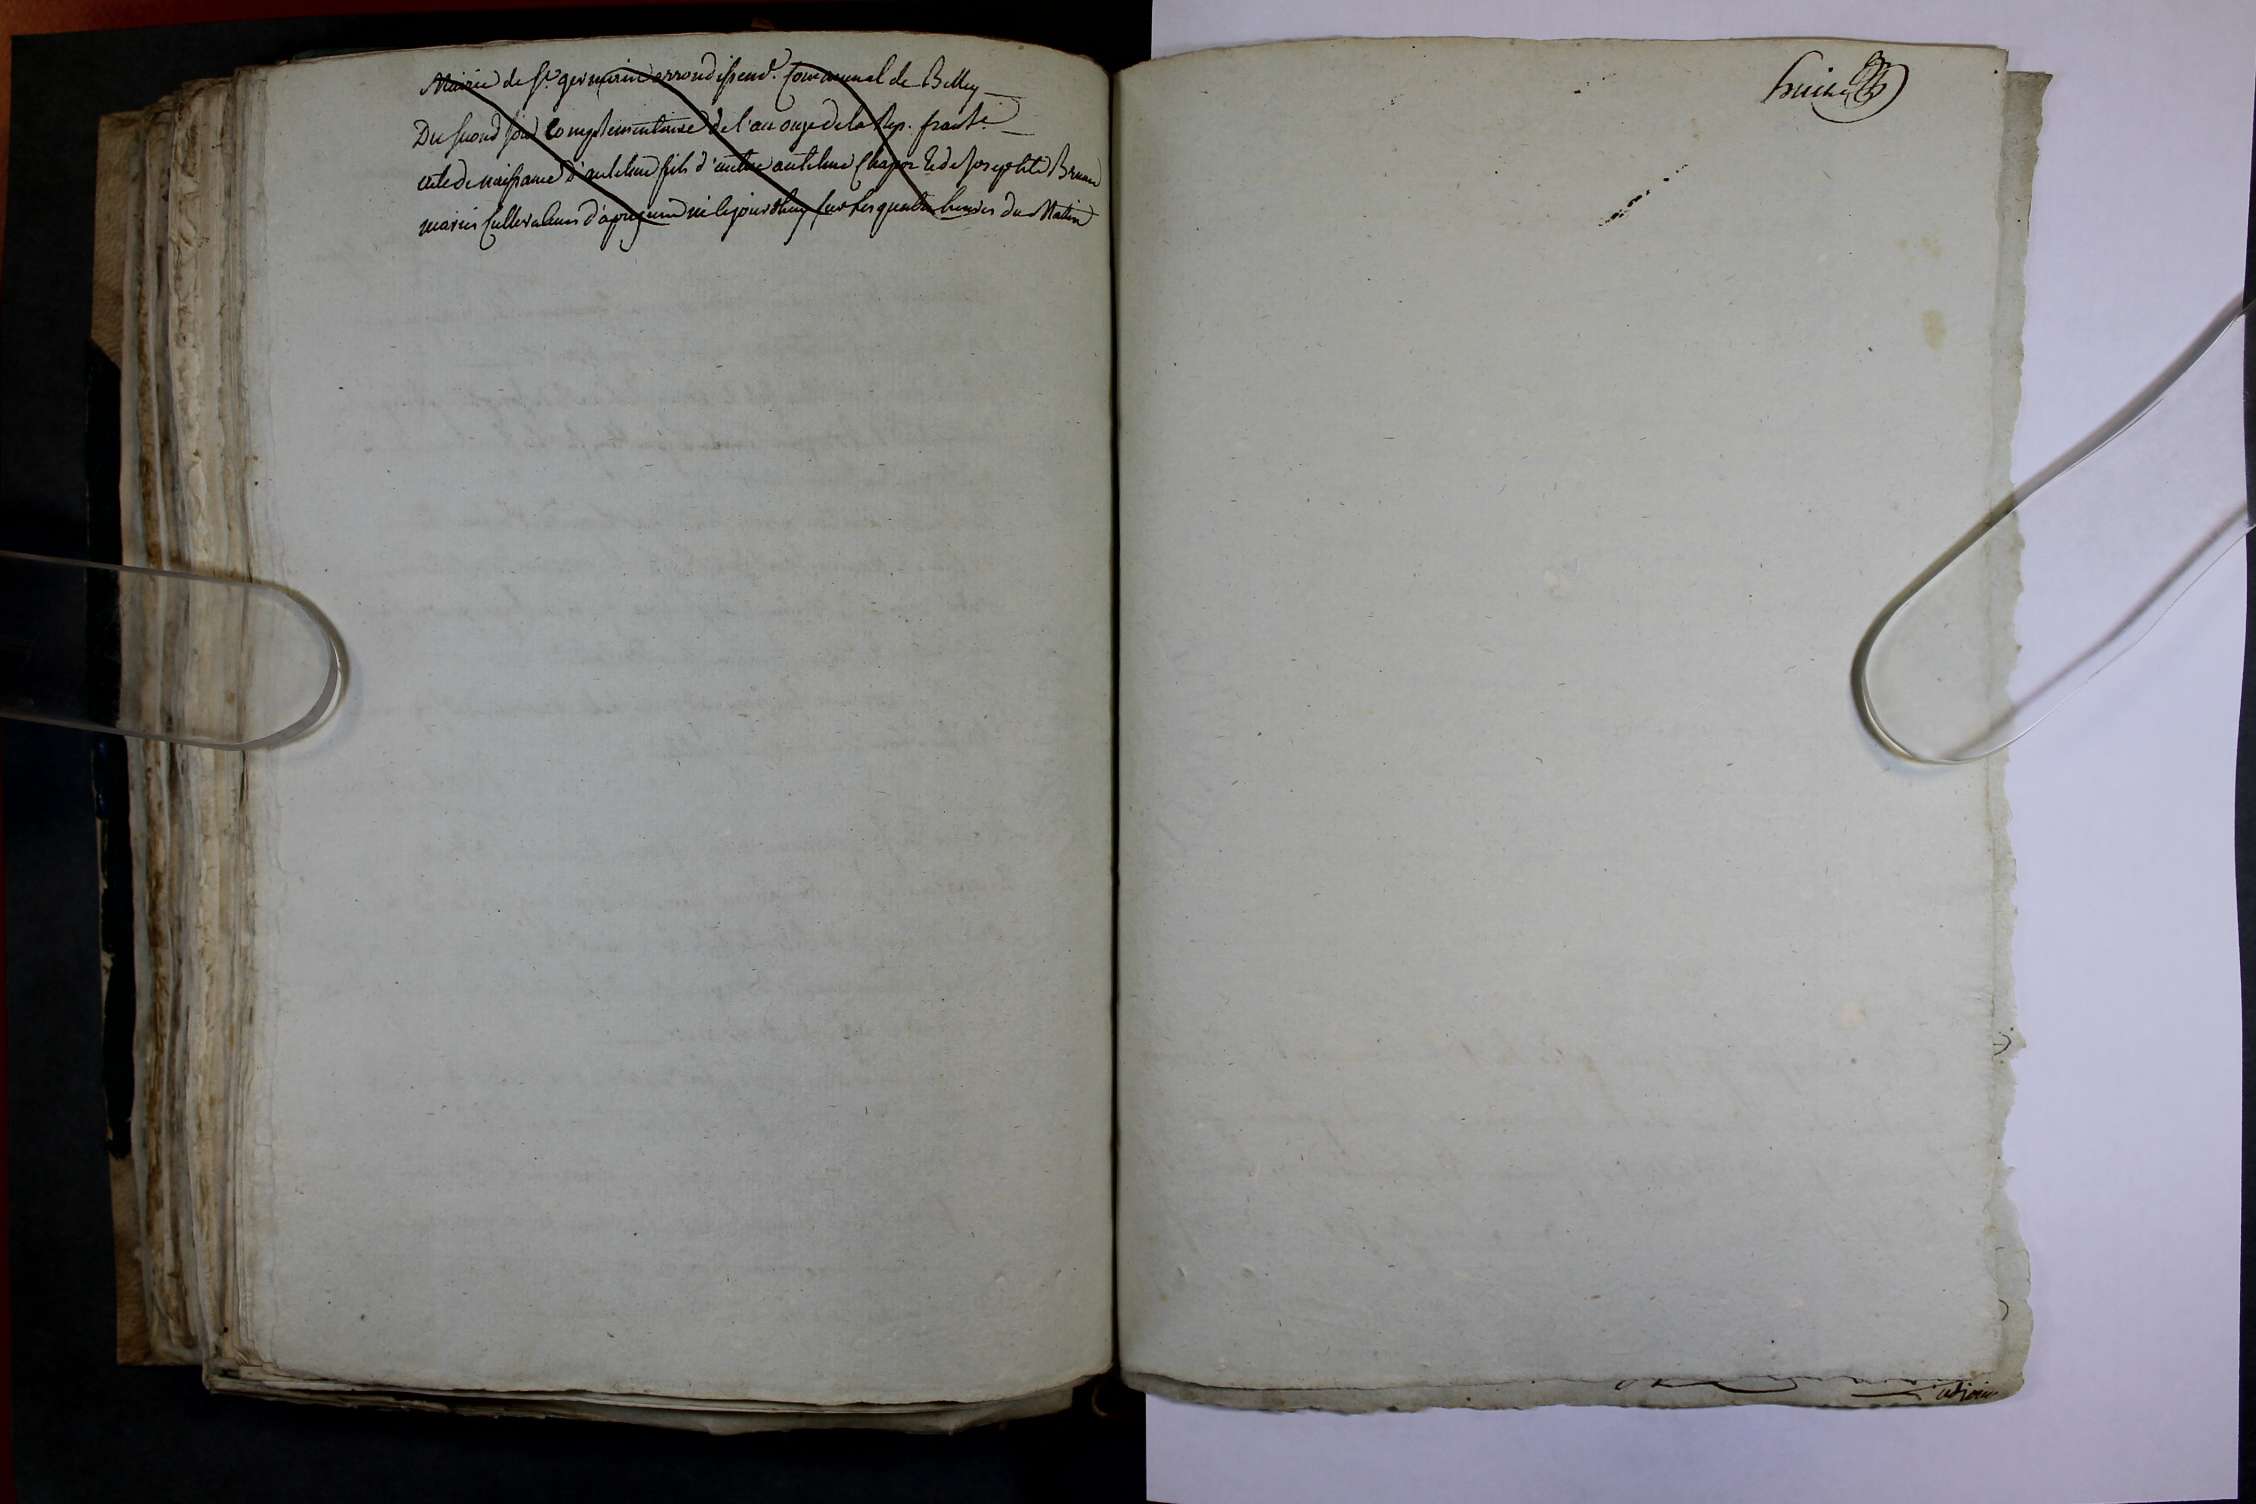 Mairie de St. germain arrondissemt. Communal de Belley
Du second jour complementaire de l'an onze de la Rep. franse.
acte de naissance d'antelme fils d'autre antelme Chapot & de Josephte Brun
mariés Cultivateurs d'apregnin né le jour d'huy sur les quatre heures du Matin
huit